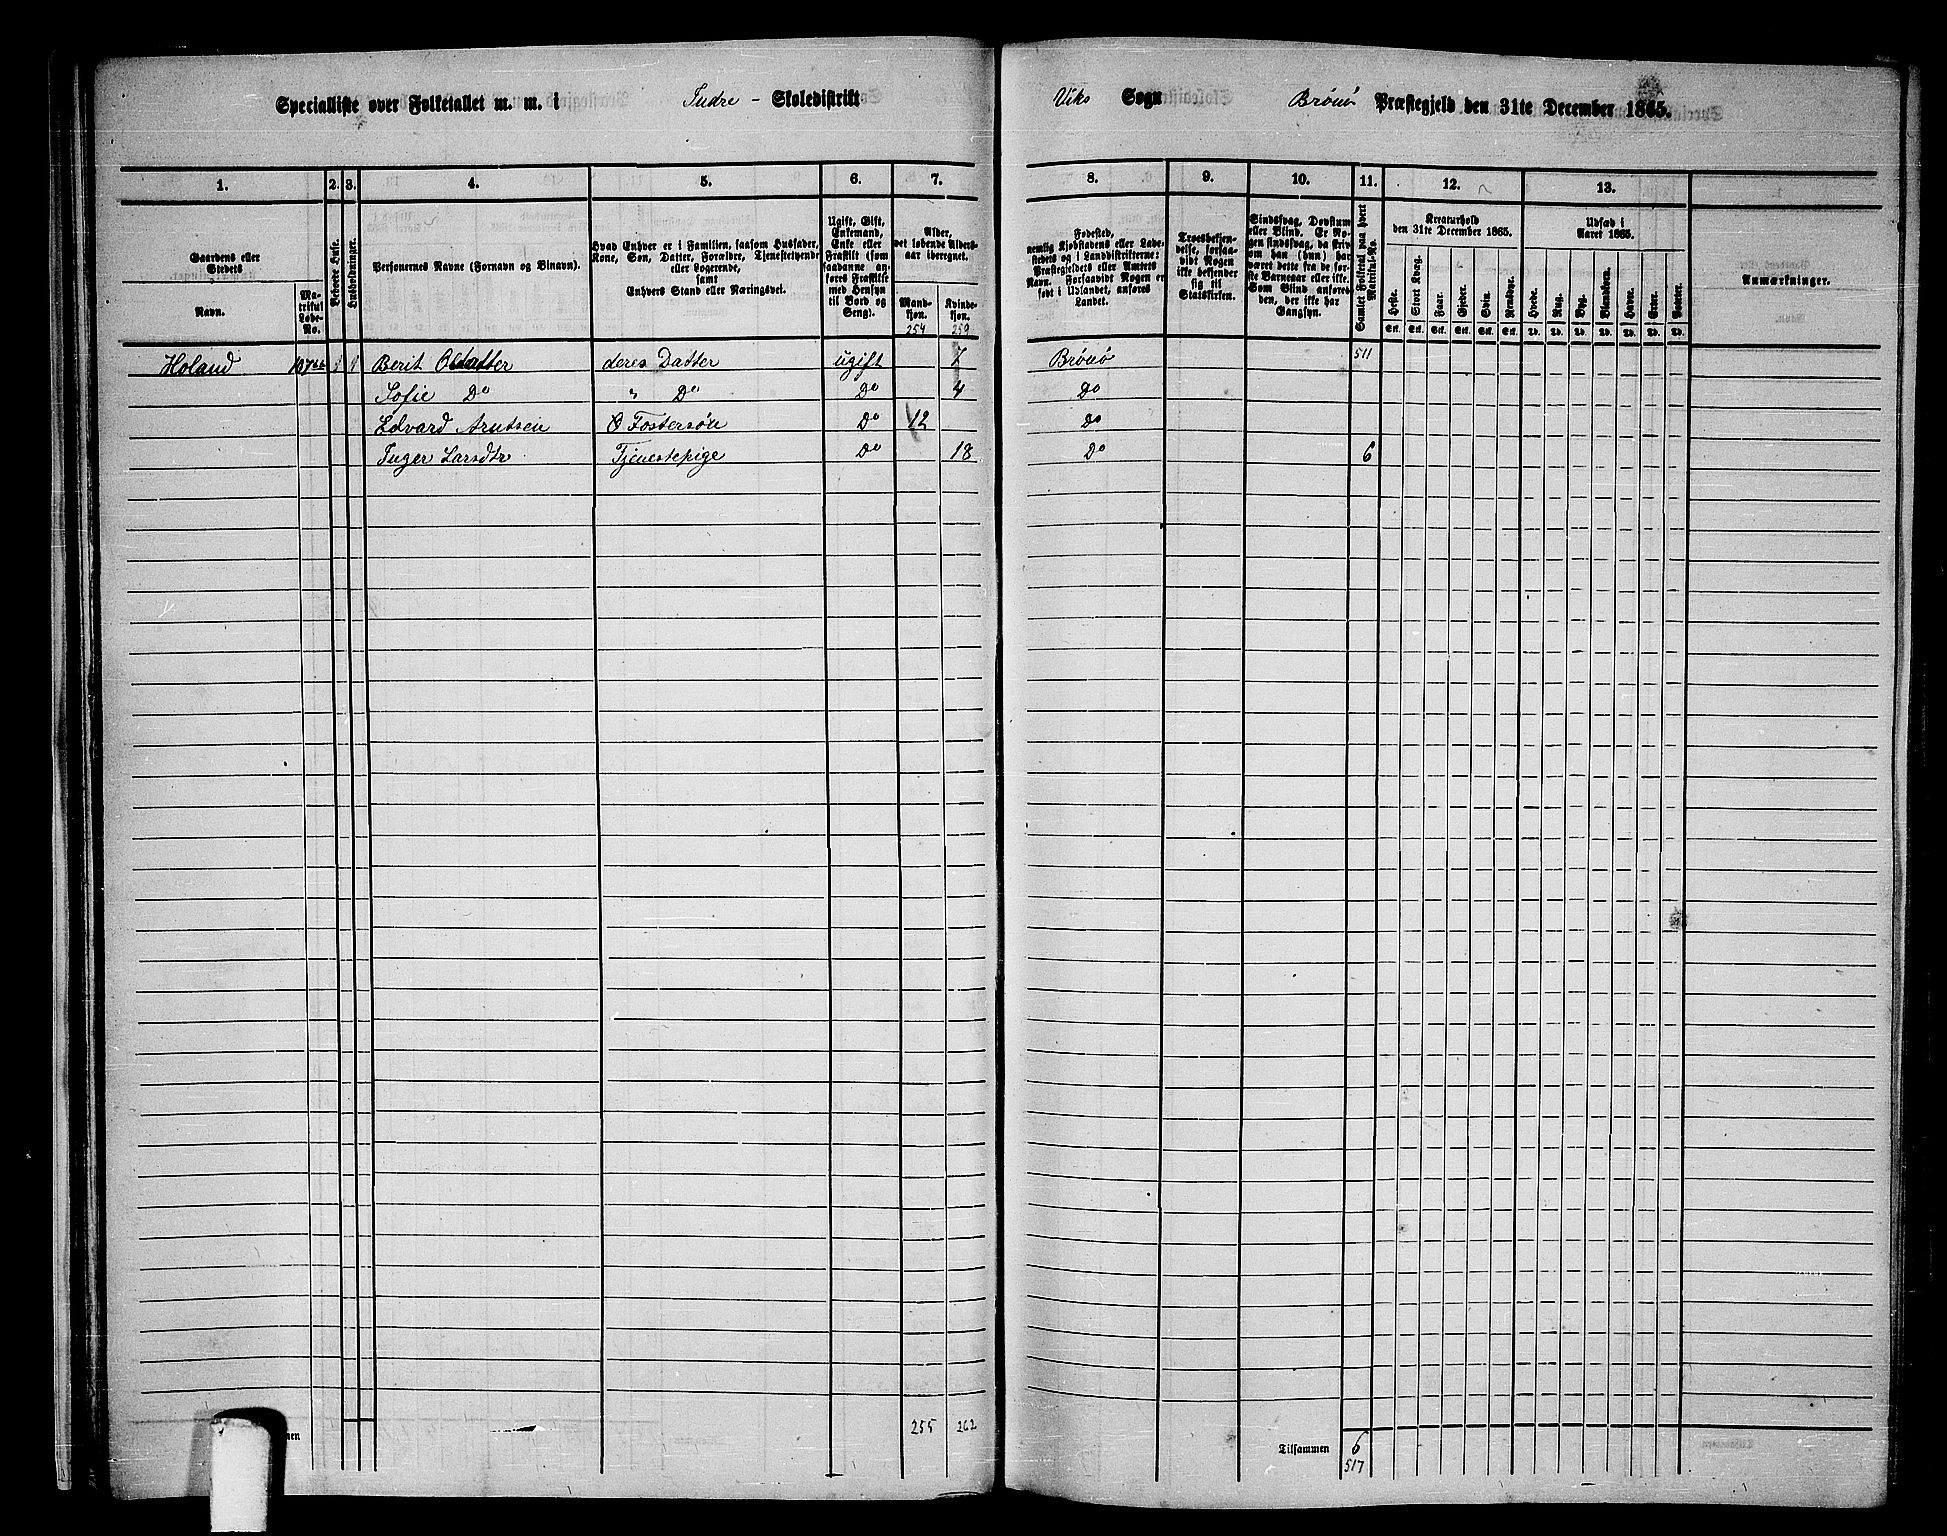 Specialliste over Folketallet m. m. i Indre - Skoledistrikt Viks Sogn Brønø Præstegjeld den 31te December 1865.
1. 2. 3. 4. 5. 6. 7. 8. 9. 10. 11. 12. 13.
Gaardens eller Stedets
Navn.
Matrikul Løbe-No.
Beboede Huse.
Husholdninger.
Personernes Navne (Fornavn og Binavn).
Hvad Enhver er i Familien, saasom Husfader, Kone, Søn, Datter, Forældre, Tjenestetyende eller Logerende,
samt
Enhvers Stand eller Næringsvei.
Ugift, Gift, Enkemand, Enke eller Fraskilt (som saadanne anføres Fraskilte med Hensyn til Bord og Seng).
Alder, det løbende Alders-aar iberegnet.
Mandkjøn. Kvindekjøn.
254 259
Fødested,
nemlig Kjøbstadens eller Ladestedets og i Landdistrikterne: Præstegjeldets eller Amtets Navn. Forsaavidt Nogen er født i Udlandet, anføres Landet.
Troesbekjendelse, forsaavidt Nogen ikke bekjender sig til Statskirken.
Sindssvag, Døvstum eller Blind. Er Nogen sindssvag, da skrives om han (hun) har været dette fra de første Barneaar eller ikke. Som Blind anføres den, der ikke har Gangsyn.
Samlet Folketal paa hvert Matrikul-No.
Kreaturhold
den 31te December 1865.
Heste. Stort Kvæg. Faar. Gjeder. Svin. Rensdyr.
Stk. Stk. Stk. Stk. Stk. Stk.
Udsæd i
Aaret 1865.
Hvede. Rug. Byg. Blandkorn. Havre. Erter. Poteter.
Td. Td. Td. Td. Td. Td. Td.
Anmærkninger.
Holand 1 1 Berit Olsdatter deres Datter ugift 7 Brønø 511
Sofie Do " Do Do 4 Do
Edvard Arntsen Fostersøn Do 12 Do
Inger Larsdtr Tjenestepige Do 18 Do 6
255 262
Tilsammen 6
517